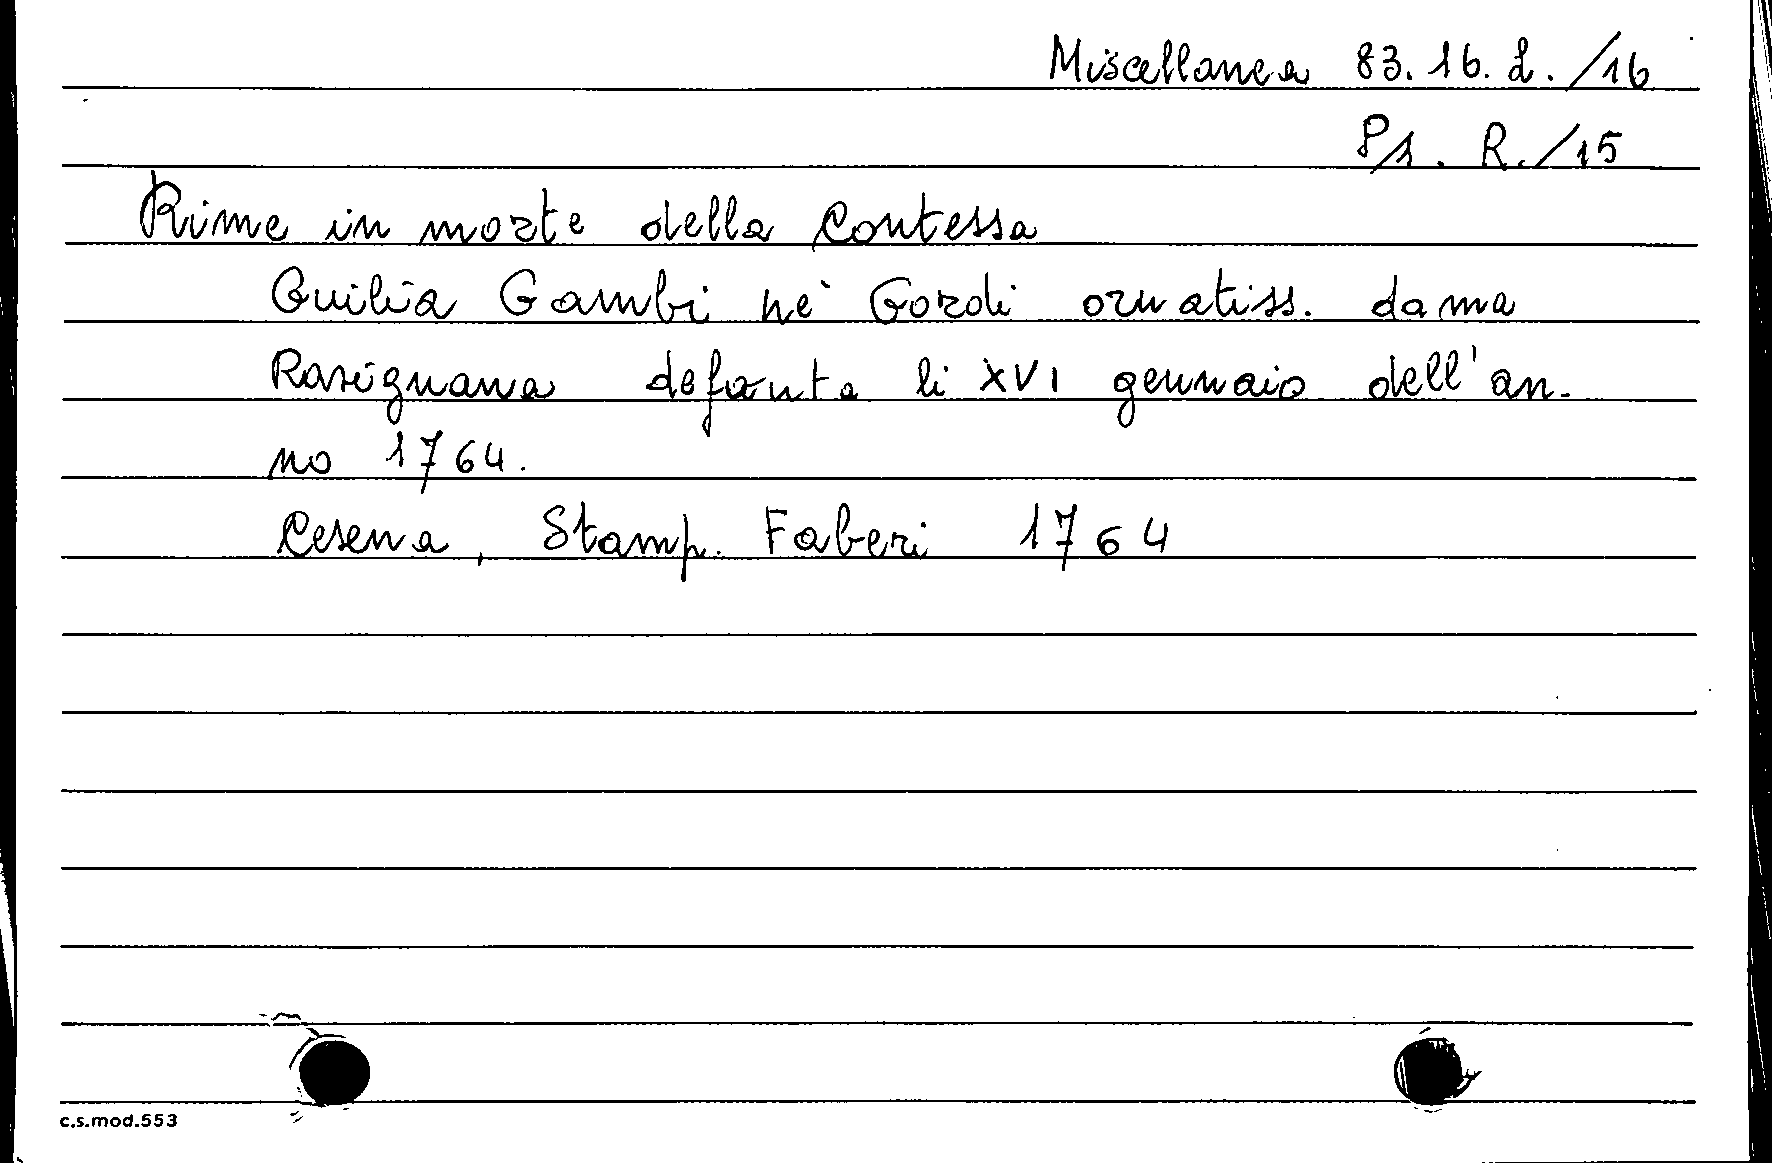 Miscellanea 83.16.L./16
P1. R./15
Rime in morte della Contessa
Guilia Gambi ne' Gordi ornatiss. dama
Ravignana defonta li XVI gennaio dell'an-
no 1764.
Cesena, Stamp. Faberi 1764
c.s.mod.553